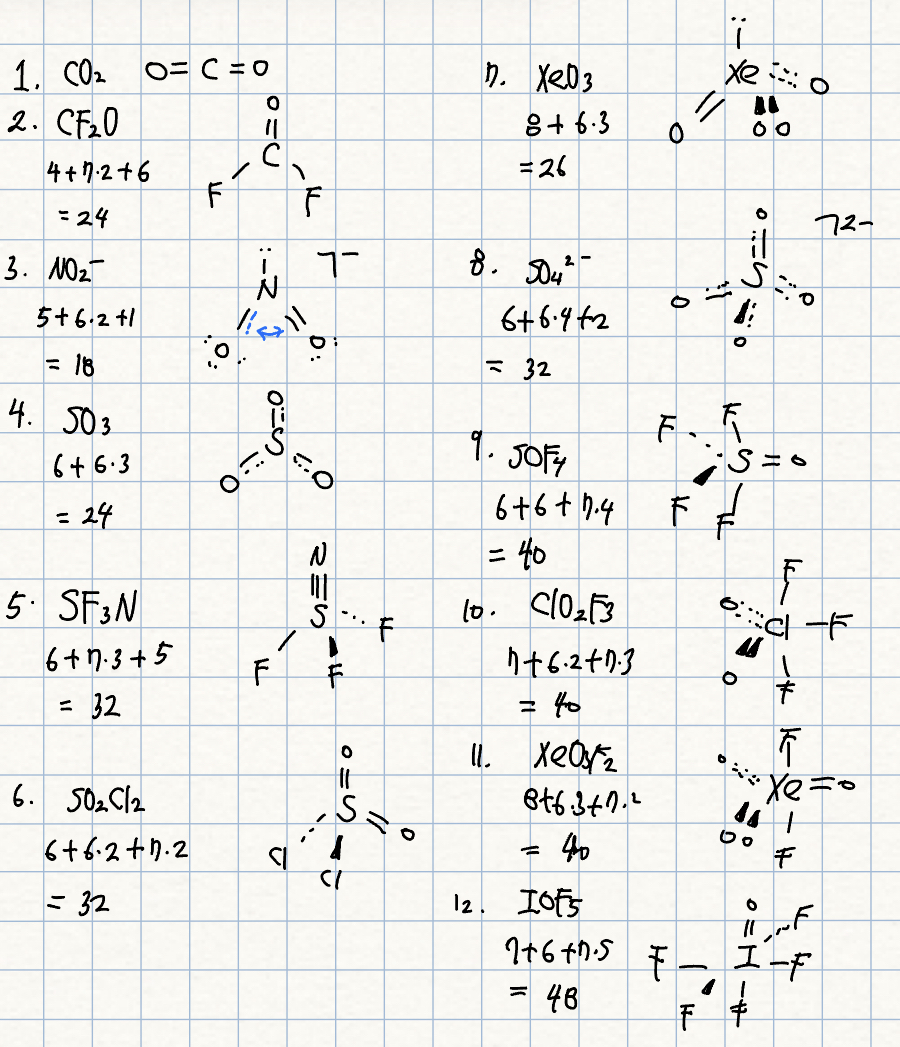 1. CO₂ O=C=O
2. CF₂O
4+7·2+6
=24
O
C
F F
3. NO₂⁻
5+6·2+1
=18
N ⁻
O O
4. SO₃
6+6·3
=24
O
S
O O
5. SF₃N
6+7·3+5
=32
N
S
F F F
6. SO₂Cl₂
6+6·2+7·2
=32
O
S
Cl O
Cl
7. XeO₃
8+6·3
=26
Xe O
O O O
8. SO₄²⁻
6+6·4+2
=32
O 2-
S
O O
O
9. SOF₄
6+6+7·4
=40
F F
S=O
F F
10. ClO₂F₃
7+6·2+7·3
=40
F
O Cl-F
O F
11. XeO₃F₂
8+6·3+7·2
=40
F
O Xe=O
O O F
12. IOF₅
7+6+7·5
=48
O F
F- I -F
F F